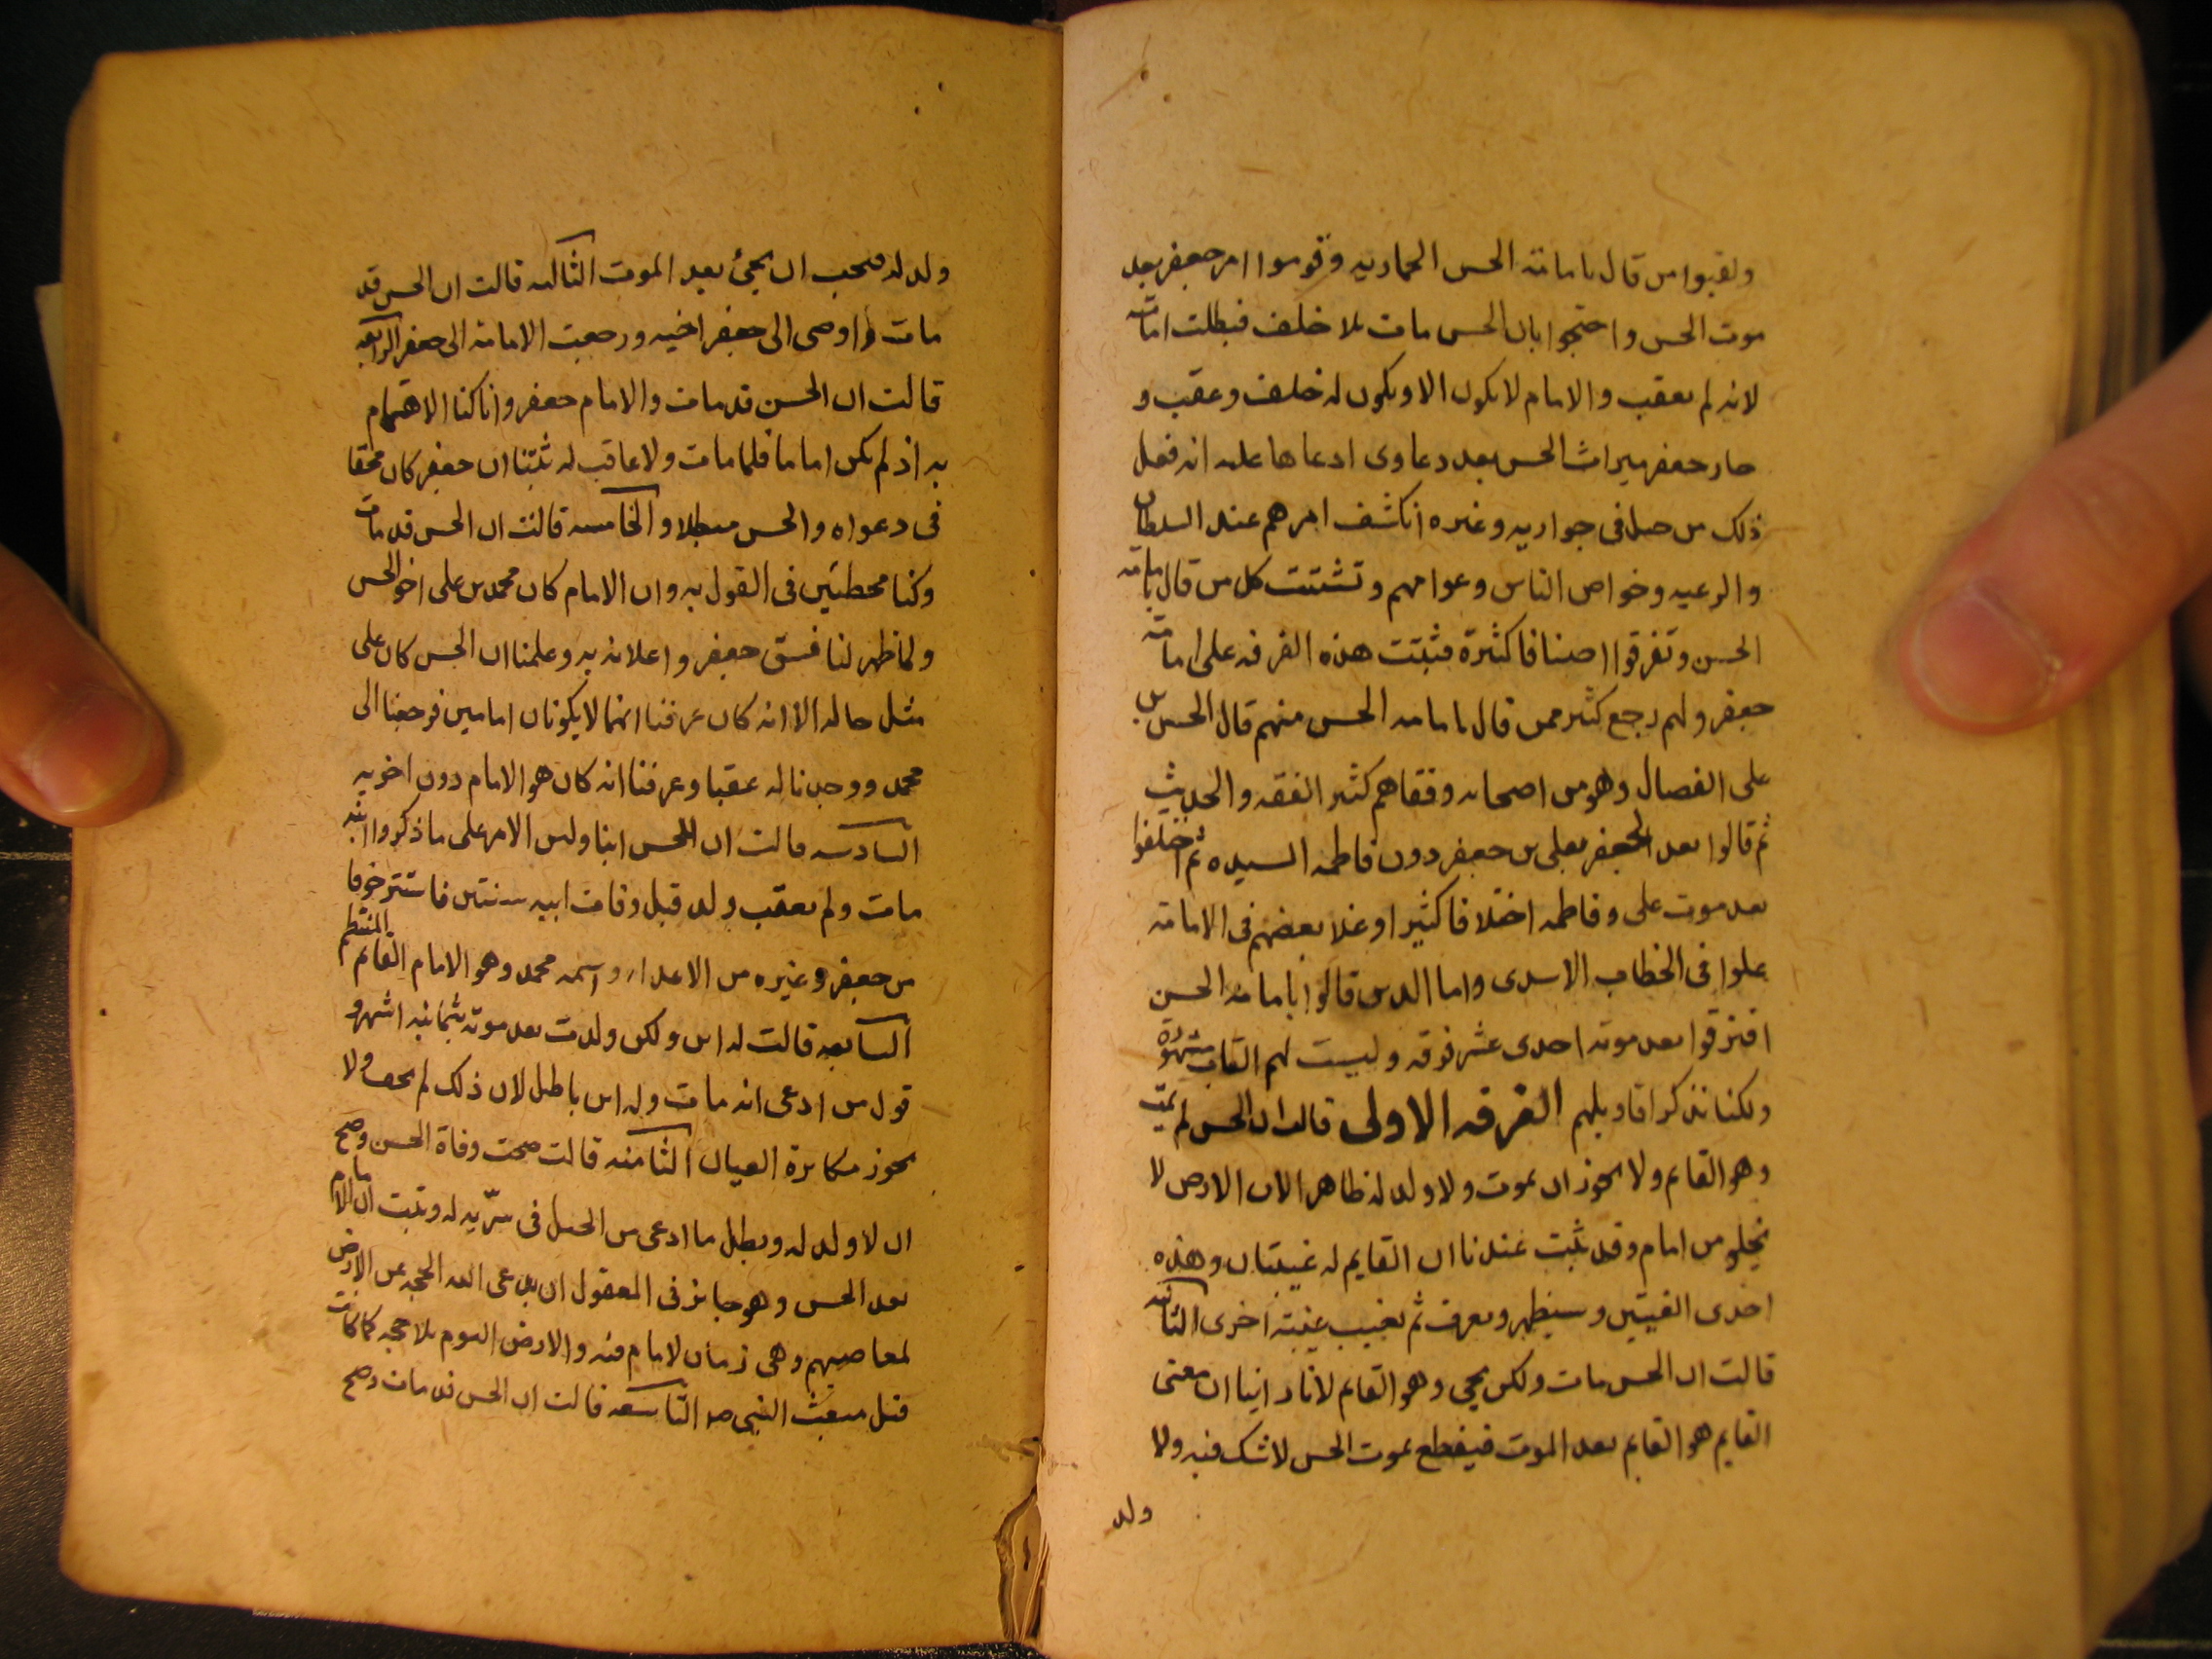 ولقبوا من قال بامامة الحسن الحمارية وقوموا امر جعفر بعد
موت الحسن واحتجوا بان الحسن مات بلا خلف فبطلت امامته
لانه لم يعقب والامام لا يكون الا ويكون له خلف وعقب و
حاز جعفر ميراث الحسن بعد دعاوى ادعاها عليه انه فعل
ذلك من حبل في جواريه وغيره انكشف امرهم عند السلطان
والرعيه وخواص الناس وعوامهم وتشتت كل من قال بامامة
الحسن وتفرقوا اصنافا كثيرة فثبتت هذه الفرقه على امامة
جعفر ولهم رجع كثير ممن قال بامامه الحسن منهم قال الحسن بن
على الفصال وهو من اصحابه وفقاهم كثير الفقه والحديث
ثم قالوا بعد الجعفر بعلى بن جعفر دون فاطمه السيده ثم اختلفوا
بعد موت على وفاطمه اختلافا كثيرا وغلا بعضهم في الامامة
علوا في الخطاب الاسدى واما الذين قالوا بامامة الحسن
افترقوا بعد موته احدى عشر فرقه وليست لهم القاب مشهورة
ولكنا نذكر اقاويلهم الفرقه الاولى قالت ان الحسن لم يمت
وهو القايم ولا يجوز ان يموت ولا ولد له ظاهر الان الارض لا
يخلو من امام وقد ثبت عندنا ان القايم له غيبتان وهذه
احدى الغيبتين وسيظهر ويعرف ثم يغيب غيبته اخرى الثانيه
قالت ان الحسن مات ولكن يحيى وهو القايم لانا راينا ان معنى
القايم هو القايم بعد الموت فيقطع بموت الحسن لا شك فيه ولا
ولد
ولد له فيجب ان يجيئ بعد الموت الثالثه قالت ان الحسن قد
مات واوصى الى جعفر اخيه ورجعت الامامة الى جعفر الرابعه
قالت ان الحسن قد مات والامام جعفر وانا كنا الاهتمام
به اذ لم يكن اماما فلما مات ولا عاقب له ثبتنا ان جعفر كان محقا
في دعواه والحسن مبطلا والخامسه قالت ان الحسن قد مات
وكنا مخطئين في القول به وان الامام كان محمد بن على اخو الحسن
ولما ظهر لنا فسق جعفر واعلانه به وعلمنا ان الحسن كان على
مثل حاله الا انه كان عرفنا انهما لا يكونان امامين فرجعنا الى
محمد ووجدنا له عقبا وعرفنا انه كان هو الامام دون اخويه
السادسه قالت ان للحسن ابنا وليس الامر على ما ذكروا انه
مات ولم يعقب ولد قبل وفات ابيه سنتين فاستتر خوفا
من جعفر وغيره من الاعداء واسمه محمد وهو الامام القائم المنتظر
السابعه قالت له ابن ولكن ولدت بعد موته بثمانيه اشهر و
قول من ادعى انه مات وله ابن باطل لان ذلك لم يخف ولا
يجوز مكابرة العيان الثامنه قالت صحت وفاة الحسن وصح
ان لا ولد له وبطل ما ادعى من الحبل في سرّيه له وثبت ان لا امام
بعد الحسن وهو جايز في المعقول ان الله الحجه عن الارض
لمعاصيهم وهى زمان لا امام فيه والارض اليوم بلا حجه كما كانت
قبل مبعث النبي صه التاسعه قالت ان الحسن قد مات وصح